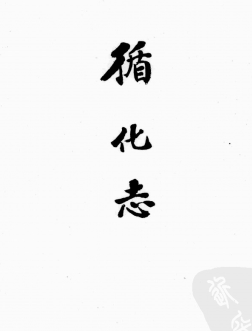 循化志